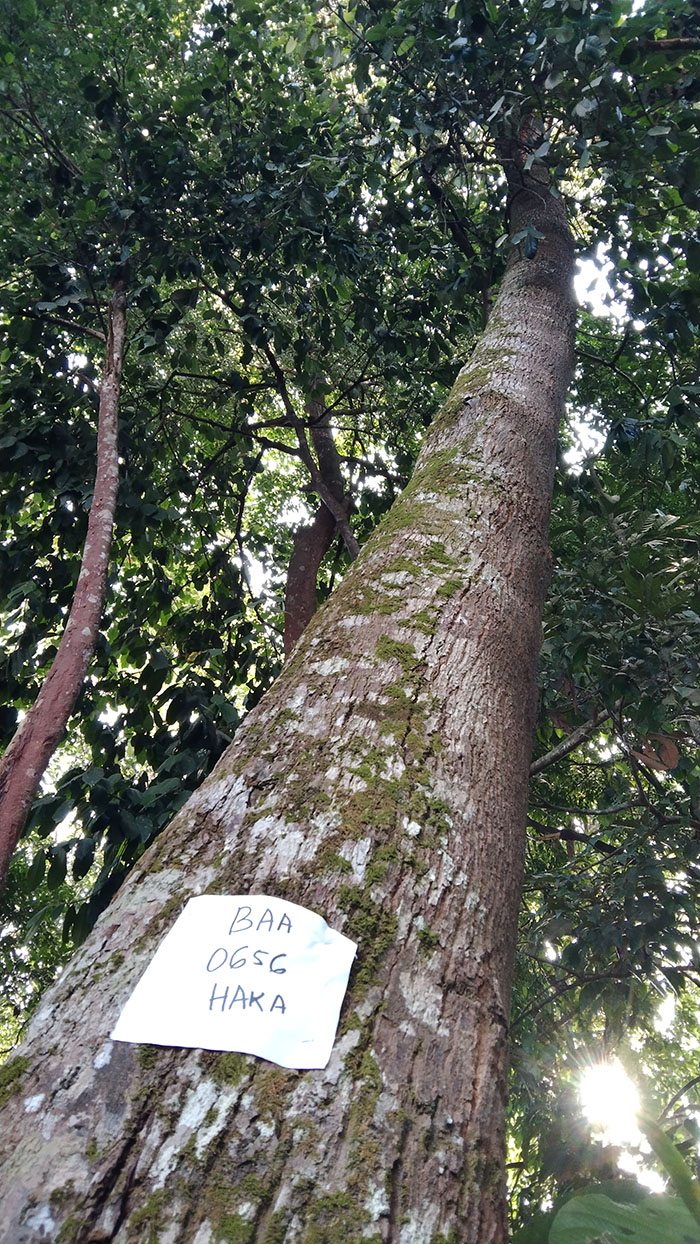 BAA
0656
HAKA